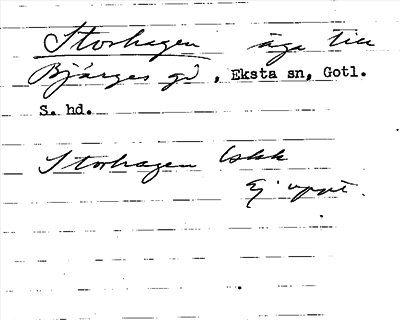 Storhagen äga till
Bjärges gd, Eksta sn, Gotl.
S. hd.
Storhagen Lskk
Ej uppt.